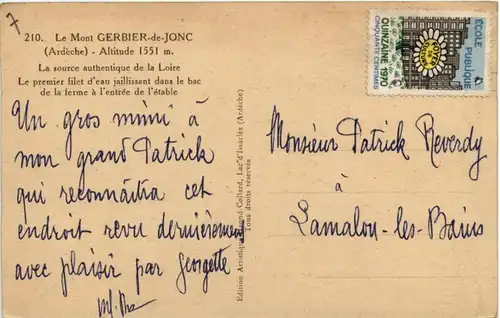 7
210. Le Mont GERBIER-de-JONC
(Ardèche) - Altitude 1551 m.
La source authentique de la Loire
Le premier filet d'eau jaillissant dans le bac
de la ferme à l'entrée de l'étable
Un gros mimi à
mon grand Patrick
qui reconnaîtra cet
endroit revu dernièrement
avec plaisir par Georgette
Edition Artistique Collard, Lac d'Issarlès (Ardèche)
Tous droits réservés
ÉCOLE
PUBLIQUE
QUINZAINE 1970
CINQUANTE CENTIMES
Monsieur Patrick Reverdy
à
Lamalou-les-Bains